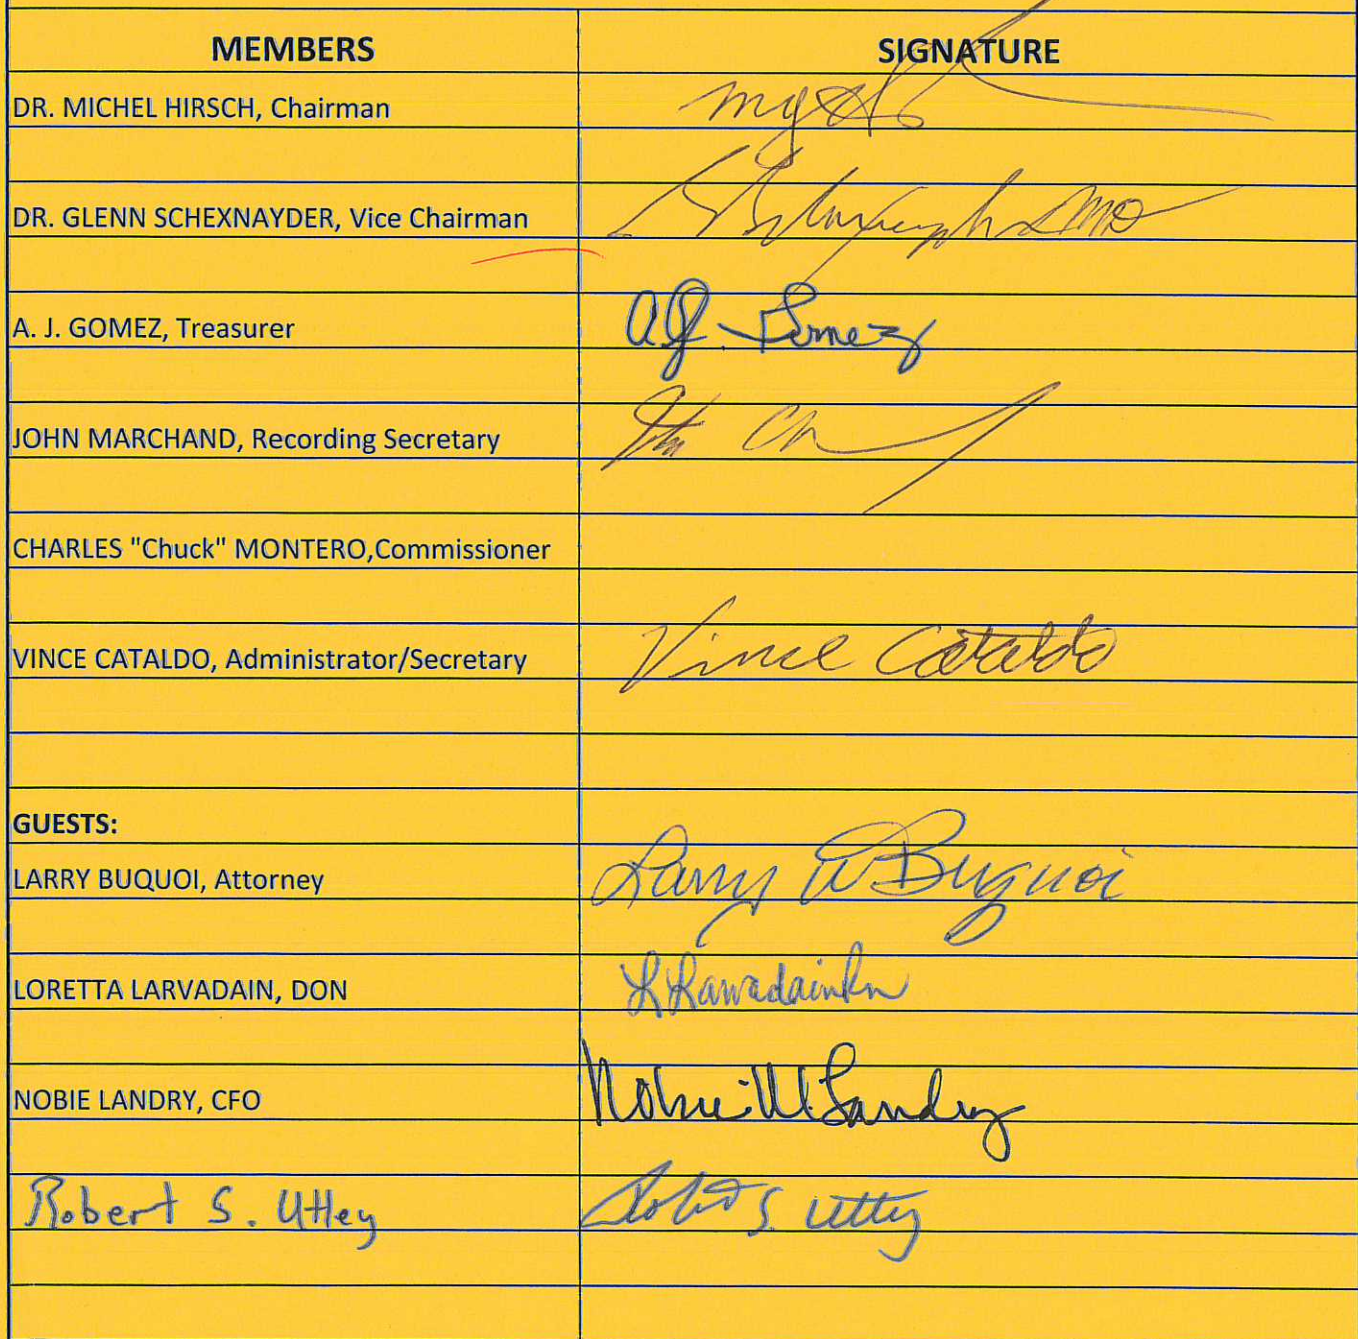 MEMBERS SIGNATURE
DR. MICHEL HIRSCH, Chairman
DR. GLENN SCHEXNAYDER, Vice Chairman MD
A. J. GOMEZ, Treasurer A.J. Gomez
JOHN MARCHAND, Recording Secretary
CHARLES "Chuck" MONTERO,Commissioner
VINCE CATALDO, Administrator/Secretary Vince Cataldo
GUESTS:
LARRY BUQUOI, Attorney Larry W Buquoi
LORETTA LARVADAIN, DON L Larvadain Rn
NOBIE LANDRY, CFO Nobie M. Landry
Robert S. Uttey Robert S. Uttey